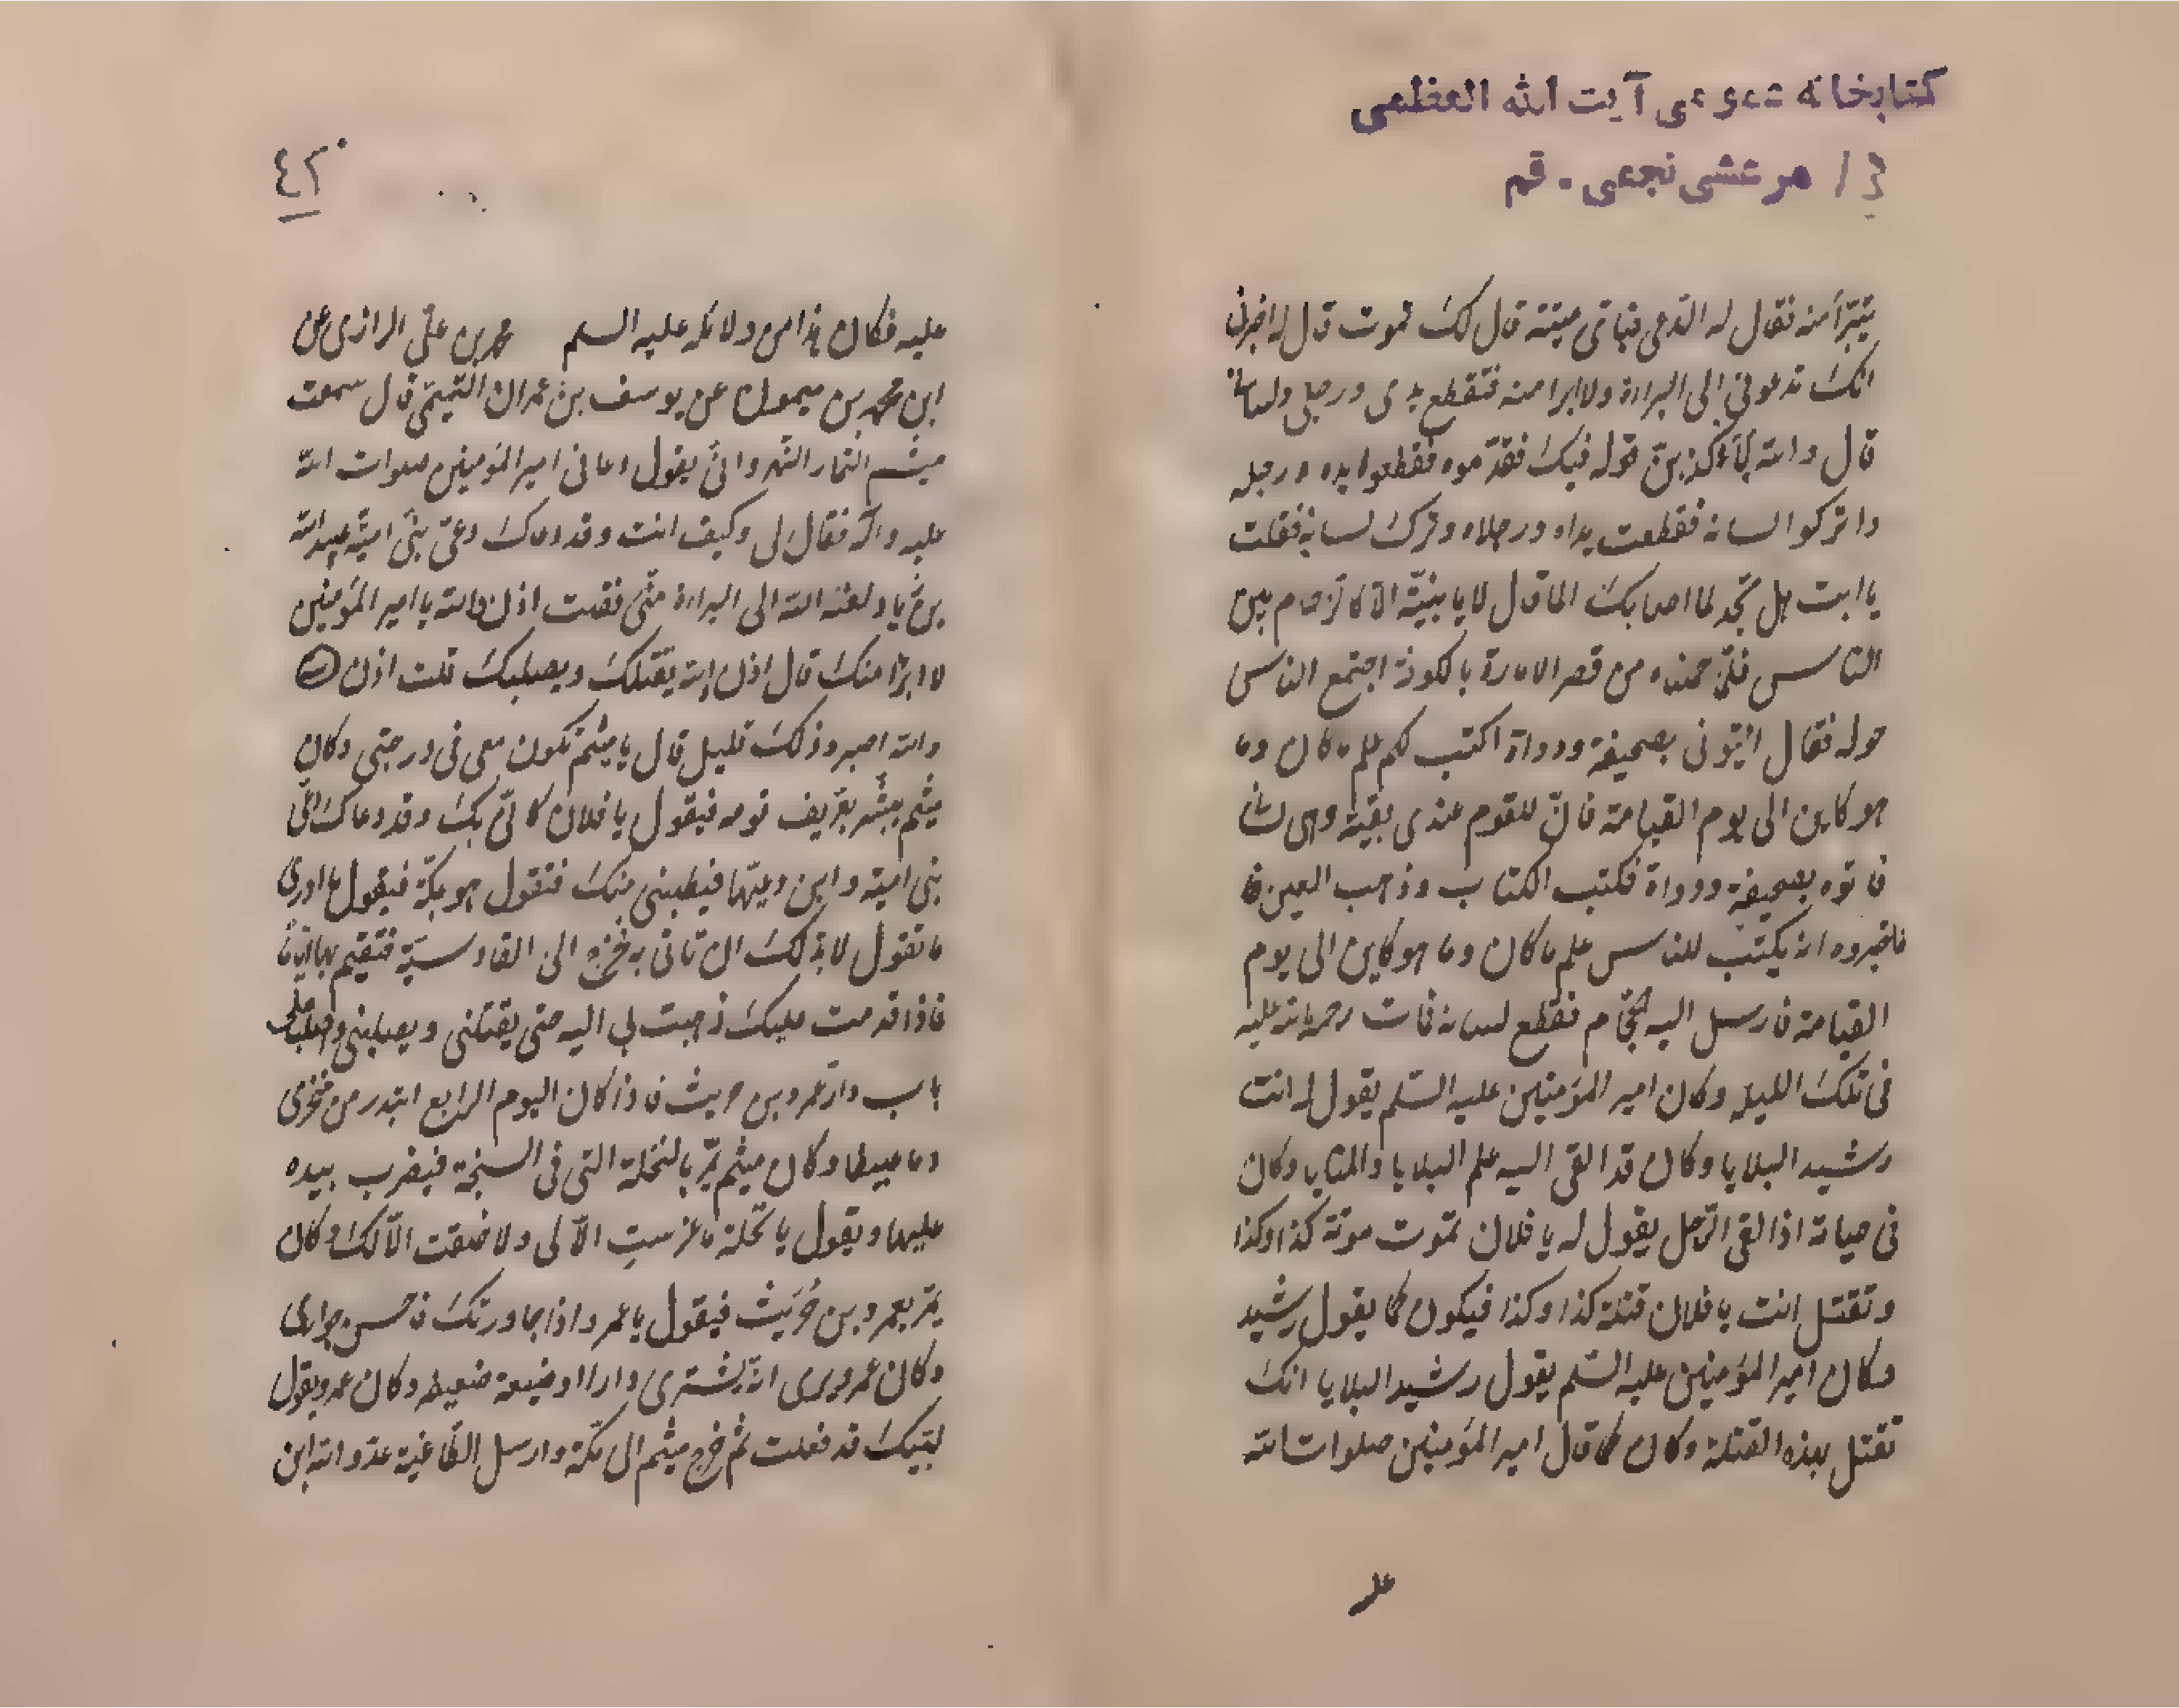 كتابخانه عمومى آيت الله العظمى
مرعشى نجفى - قم
يتبرّأ منه فقال له الدعى فبأى ميتة قال لك تموت قال له اخبرنى
انك تدعونى الى البراءة ولا ابرا منه فتقطع يدى ورجلى ولسانى
قال والله لأكذبنّ قوله فيك فقدّموه فقطعوا يده ورجله
واتركوا لسانه فقطعت يداه ورجلاه وترك لسانه فقلت
يا ابت هل تجد لما اصابك الما قال لا يا بنيّة الا كالزحام بين
الناس فلمّا حملناه من قصر الامارة بالكوفة اجتمع الناس
حوله فقال ائتونى بصحيفة ودواة اكتب لكم علم ما كان وما
هو كاين الى يوم القيامة فانّ للقوم عندى بقية وهى لسانى
فاتوه بصحيفة ودواة فكتب الكتاب وذهب العين
فاخبروه انه يكتب للناس علم ما كان وما هو كاين الى يوم
القيامة فارسل اليه الحجّام فقطع لسانه فمات رحمة الله عليه
فى تلك الليلة وكان امير المؤمنين عليه السّلم يقول له انت
رشيد البلايا وكان قد القى اليه علم البلايا والمنايا وكان
فى حياته اذا لقى الرّجل يقول له يا فلان تموت موتة كذا وكذا
وتقتل انت يا فلان قتلة كذا وكذا فيكون كما يقول رشيد
وكان امير المؤمنين عليه السّلم يقول رشيد البلايا انك
تقتل بهذه القتلة وكان كما قال امير المؤمنين صلوات الله
عليه
٤٢
عليه فكان هذا من دلائله عليه السلم محمد بن علىّ الرازى عن
ابن محمد بن ميمون عن يوسف بن عمران الميثمى قال سمعت
ميثم التمار النهروانىّ يقول دعانى امير المؤمنين صلوات الله
عليه واله فقال لى وكيف انت وقد دعاك دعىّ بنى اميّة عبيد الله
بن زياد لعنه الله الى البراءة منّى فقلت اذن والله يا امير المؤمنين
لا ابرا منك قال اذن والله يقتلك ويصلبك قلت اذن
والله اصبر وذلك قليل قال يا ميثم تكون معى فى درجتى وكان
ميثم يمرّ بعريف قومه فيقول يا فلان كانّى بك وقد دعاك دعىّ
بنى امية وابن دعيّها فيطلبنى منك فتقول هو بمكّة فيقول ما ادرى
ما تقول لا بدّ لك ان تاتى به فتخرج الى القادسيّة فتقيم بها ايّاما
فاذا قدمت عليك ذهبت بى اليه حتى يقتلنى ويصلبنى على
باب دار عمرو بن حريث فاذا كان اليوم الرابع ابتدر من منخرى
دما عبيطا وكان ميثم يمرّ بالنخلة التى فى السبخة فيضرب بيده
عليها ويقول يا نخلة ما غرستِ الّا لى ولا خلقت الّا لك وكان
يمرّ بعمرو بن حُريث فيقول يا عمرو اذا جاورتك فاحسن جوارى
وكان عمرو يرى انه يشترى دارا او ضيعة ضعيفه وكان عمرو يقول
ليتك قد فعلت ثم خرج ميثم الى مكّة وارسل الطّاغية عدوّ الله ابن